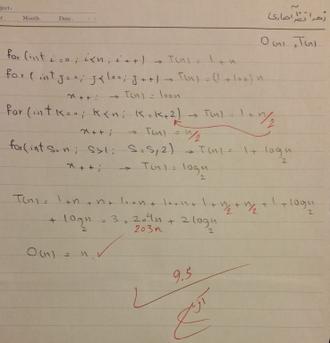 Date. Month.
O(n), T(n)
for(int i=0; i<n; i++) → T(n) = 1+n
for(int j=0; j<100; j++) → T(n)=(1+100)n
x++; → T(n)=100n
for(int k=0; k<n; k=k+2) → T(n) = 1+n/2
x++; → T(n)=n/2
for(int s=n; s>1; s=s/2) → T(n) = 1+log2n
x++; → T(n)=log2n
T(n)= 1+n+n+100n+100n+1+n/2+n/2+1+log2n
+log2n = 3+204n+2log2n
203n
O(n) = n
9.5